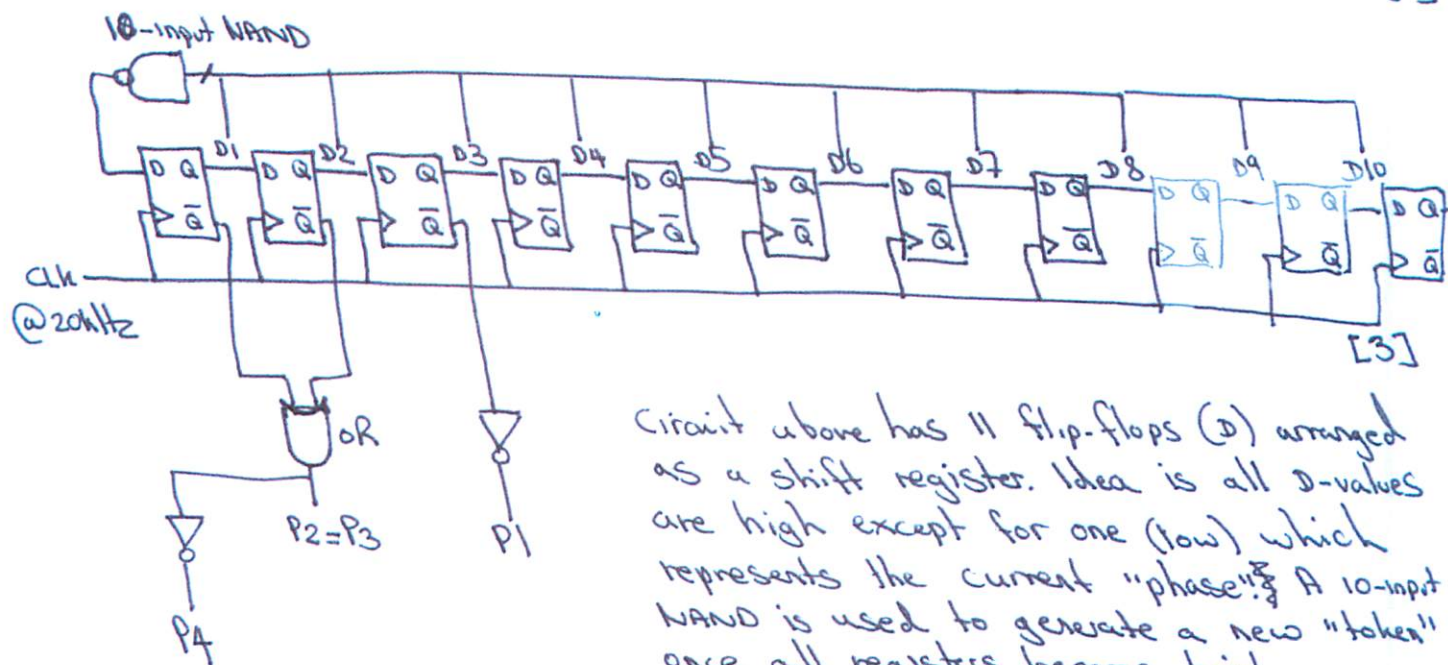 10-input NAND
D1 D2 D3 D4 D5 D6 D7 D8 D9 D10
D Q D Q D Q D Q D Q D Q D Q D Q D Q D Q D Q
Q̅ Q̅ Q̅ Q̅ Q̅ Q̅ Q̅ Q̅ Q̅ Q̅ Q̅
Clk
@20kHz
[3]
OR
P2=P3
P1
P4
Circuit above has 11 flip-flops (D) arranged
as a shift register. Idea is all D-values
are high except for one (low) which
represents the current "phase". A 10-input
NAND is used to generate a new "token"
once all registers become